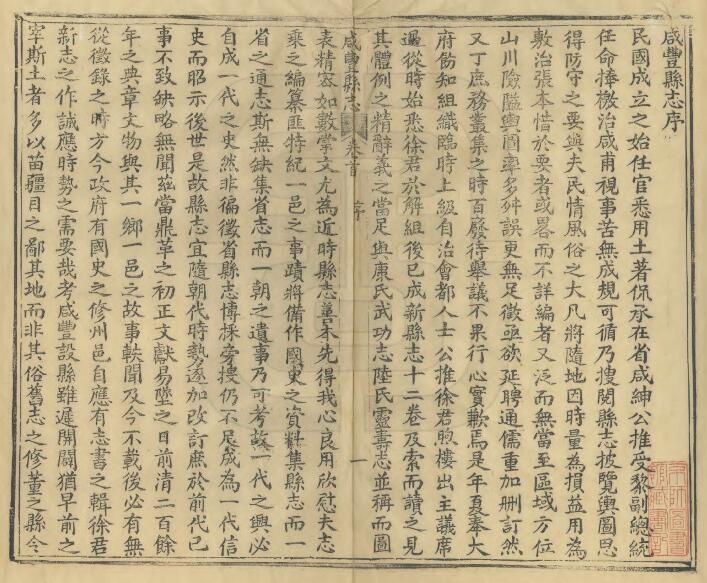 咸豐縣志序
民國成立之始任官悉用土著侃承在省咸紳公推受黎副總統
任命捧檄治咸甫視事苦無成規可循乃搜閱縣志披覽輿圖思
得防守之要與夫民情風俗之大凡將隨地因時量為損益用為
敷治張本惜於要者或畧而不詳編者又泛而無當至區域方位
山川險隘輿圖率多舛誤更無足徵亟欲延聘通儒重加刪訂然
又丁庶務叢集之時百廢待舉議不果行心實歉焉是年夏奉大
府飭知組織臨時上級自治會都人士公推徐君煦樓出主議席
過從時始悉徐君於解組後已成新縣志十二卷及索而讀之見
其體例之精辭義之當足與康氏武功志陸氏靈壽志並稱而圖
咸豐縣志 卷首 序 一
表精密如數掌文尤為近時縣志善本先得我心良用欣慰夫志
乘之編纂匪特紀一邑之事蹟將備作國史之資料集縣志而一
省之通志斯無缺集省志而一朝之遺事乃可考故一代之興必
自成一代之史然非徧徵省縣志博採旁搜仍不足成為一代信
史而昭示後世是故縣志宜隨朝代時勢遞加改訂庶於前代已
事不致缺略無聞茲當鼎革之初正文獻易墜之日前清二百餘
年之典章文物與其一鄉一邑之故事軼聞及今不載後必有無
從徵錄之時方今政府有國史之修州邑自應有志書之輯徐君
新志之作誠應時勢之需要哉考咸豐設縣雖遲開闢猶早前之
宰斯土者多以苗疆目之鄙其地而非其俗舊志之修董之縣令